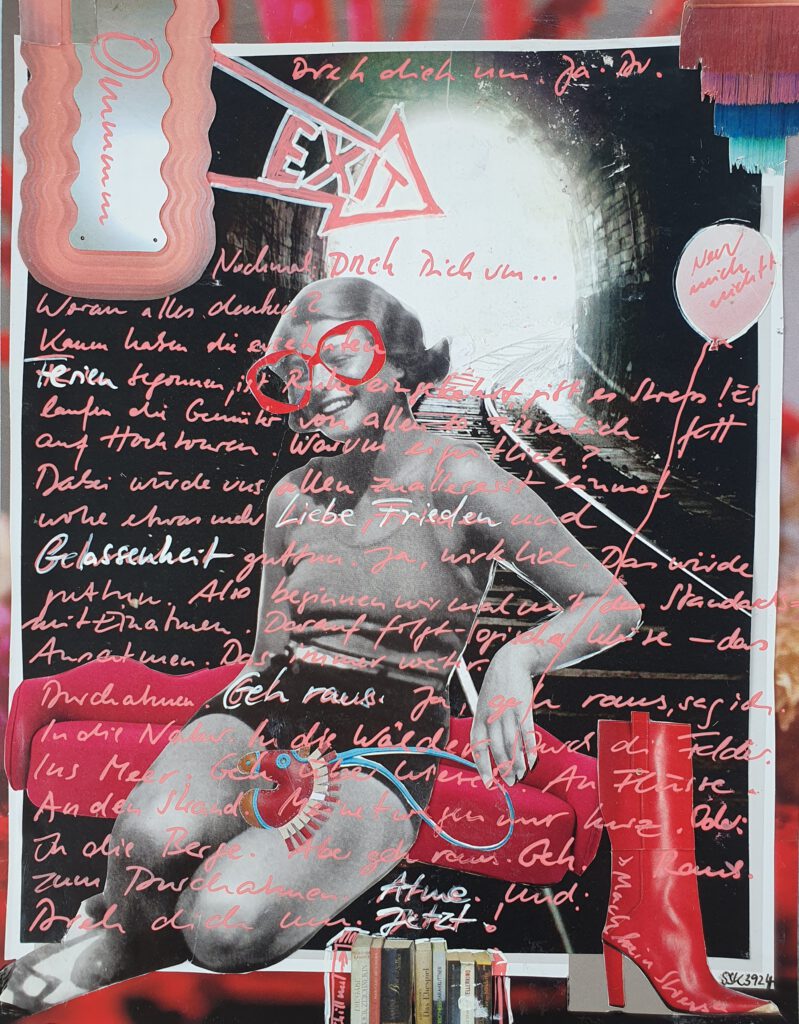 Dreh dich um. Ja. Du.
Ommmmm
EXIT
Nochmal. Dreh Dich um...
Nerv
mich
nicht
Woran alles denken?
Kaum haben die ersehnten
Ferien begonnen, ist Ruhe eingekehrt gibt es Stress! Es
laufen die Gemüter von allen ziemlich fett
auf Hochtouren. Warum eigentlich?
Dabei würde uns allen zuallererst einmal
wohl etwas mehr Liebe, Frieden und
Gelassenheit guttun. Ja, wirklich. Das würde
guttun. Also beginnen wir mal mit den Standards –
mit Einatmen. Darauf folgt logischer Weise – das
Ausatmen. Das immer weiter.
Durchatmen. Geh raus. Ja geh raus, sag ich.
In die Natur. In die Wälder. Durch die Felder.
Ins Meer. Geh Wiesen. An Flüsse.
An den Strand. kurz. Oder:
In die Berge. Aber geh raus. Geh. Raus.
Zum Durchatmen. Atme. Und:
Dreh dich um. Jetzt!
Mach kein Stress
Chill mal
Das Ehespiel
SSK3924